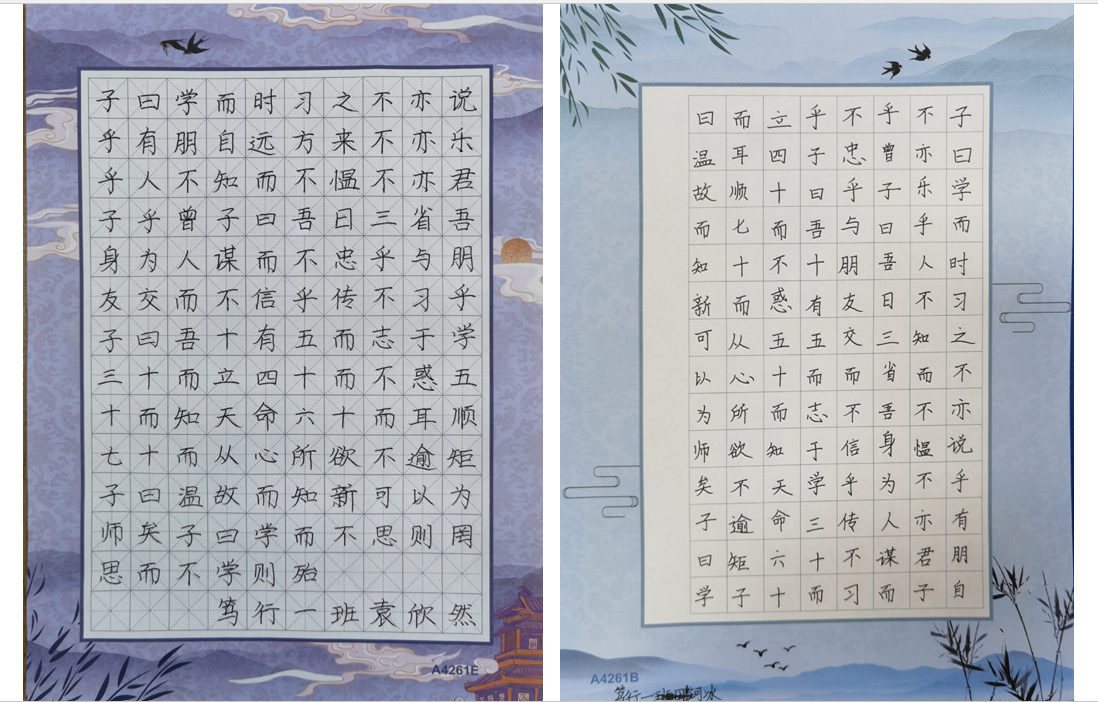 子曰学而时习之不亦说
乎有朋自远方来不亦乐
乎人不知而不愠不亦君
子乎曾子曰吾日三省吾
身为人谋而不忠乎与朋
友交而不信乎传不习乎
子曰吾十有五而志于学
三十而立四十而不惑五
十而知天命六十而耳顺
七十而从心所欲不逾矩
子曰温故而知新可以为
师矣子曰学而不思则罔
思而不学则殆
笃行一班袁欣然
A4261E
子曰学而时习之不亦说乎有朋自
不亦乐乎人不知而不愠不亦君子
乎曾子曰吾日三省吾身为人谋而
不忠乎与朋友交而不信乎传不习
乎子曰吾十有五而志于学三十而
立四十而不惑五十而知天命六十
而耳顺七十而从心所欲不逾矩子
曰温故而知新可以为师矣子曰学
A4261B
笃行一班